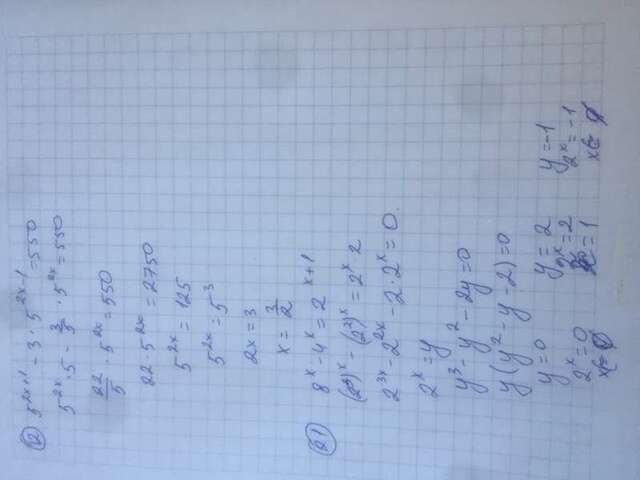 12 5^{2x+1} - 3 · 5^{2x-1} = 550
5^{2x} · 5 - \frac{3}{5} · 5^{2x} = 550
\frac{22}{5} · 5^{2x} = 550
22 · 5^{2x} = 2750
5^{2x} = 125
5^{2x} = 5^3
2x = 3
x = \frac{3}{2}
21 8^x - 4^x = 2^{x+1}
(2^3)^x - (2^2)^x = 2^x · 2
2^{3x} - 2^{2x} - 2 · 2^x = 0.
2^x = y
y^3 - y^2 - 2y = 0
y(y^2 - y - 2) = 0
y = 0 y = 2 y = -1
2^x = 0 2^x = 2 2^x = -1
x ∈ ∅ x = 1 x ∈ ∅